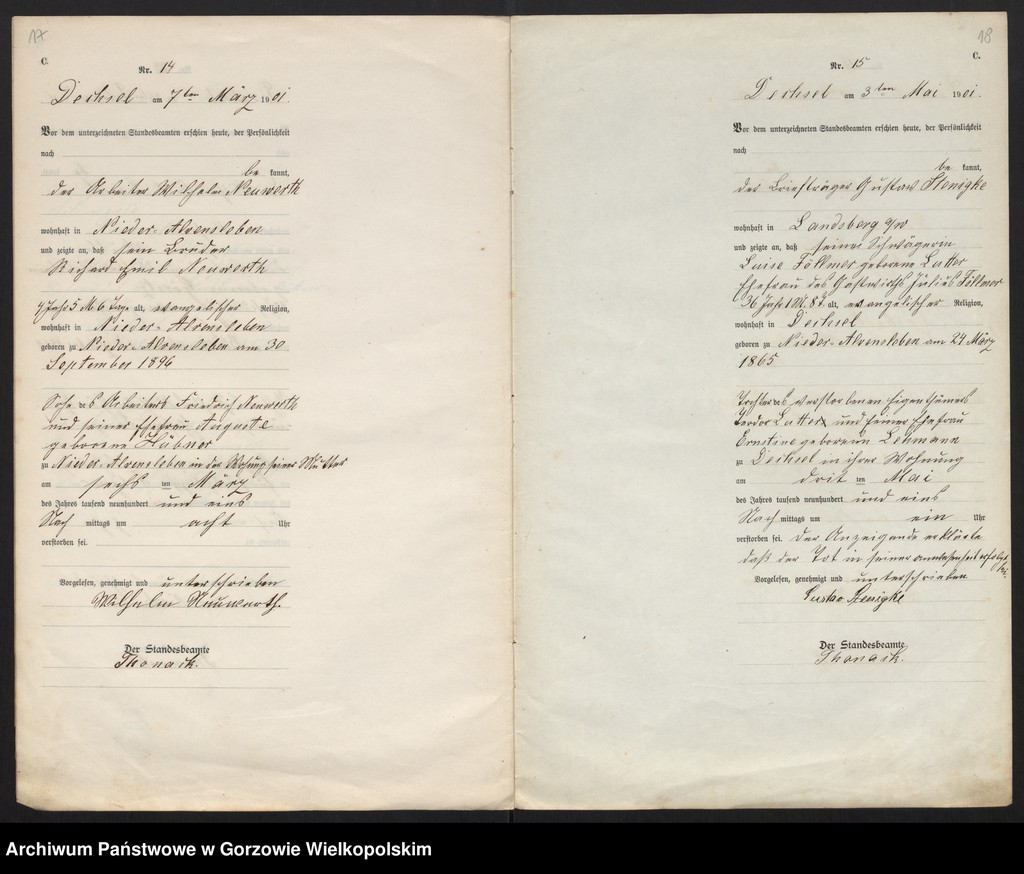 17
C.
Nr. 14
Dechsel am 7ten März 1901.
Vor dem unterzeichneten Standesbeamten erschien heute, der Persönlichkeit
nach
be kannt,
der Arbeiter Wilhelm Neuwerth
wohnhaft in Nieder-Alvensleben
und zeigte an, daß sein Bruder
Richard Emil Neuwerth
Jahr 5 M 6 Tage alt, evangelischer Religion,
wohnhaft in Nieder-Alvensleben
geboren zu Nieder-Alvensleben am 30
September 1896
Sohn des Arbeiters Friedrich Neuwerth
und seiner Ehefrau Auguste
geborene Hübner
zu Nieder-Alvensleben in der Wohnung seiner Mutter
am sechs ten März
des Jahres tausend neunhundert und eins
Nach mittags um acht Uhr
verstorben sei.
Vorgelesen, genehmigt und unterschrieben
Wilhelm Neuwerth.
Der Standesbeamte
Thonack.
18
C.
Nr. 15
Dechsel am 3ten Mai 1901.
Vor dem unterzeichneten Standesbeamten erschien heute, der Persönlichkeit
nach
be kannt,
der Briefträger Gustav Stenigke
wohnhaft in Landsberg a/W
und zeigte an, daß seine Schwägerin
Luise Föllmer geborene Lutter
Ehefrau des Gastwirths Julius Föllmer
36 Jahr 1 M. 8 T. alt, evangelischer Religion,
wohnhaft in Dechsel
geboren zu Nieder-Alvensleben am 24 März
1865
Tochter des verstorbenen Eigenthümers
Teodor Lutter und seiner Ehefrau
Ernstine geborenen Lehmann
zu Dechsel in ihrer Wohnung
am drit ten Mai
des Jahres tausend neunhundert und eins
Nach mittags um ein Uhr
verstorben sei. Der Anzeigende erklärte
daß der Tot in seiner anwesenheit erfolgt
sei.
Vorgelesen, genehmigt und unterschrieben
Gustav Stenigke
Der Standesbeamte
Thonack.
Archiwum Państwowe w Gorzowie Wielkopolskim